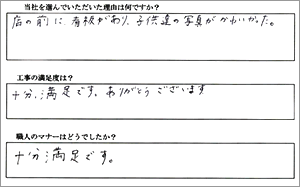 当社を選んでいただいた理由は何ですか?
店の前に、看板があり、子供達の写真がかわいかった。
工事の満足度は?
十分、満足です。ありがとうございます
職人のマナーはどうでしたか?
十分満足です。